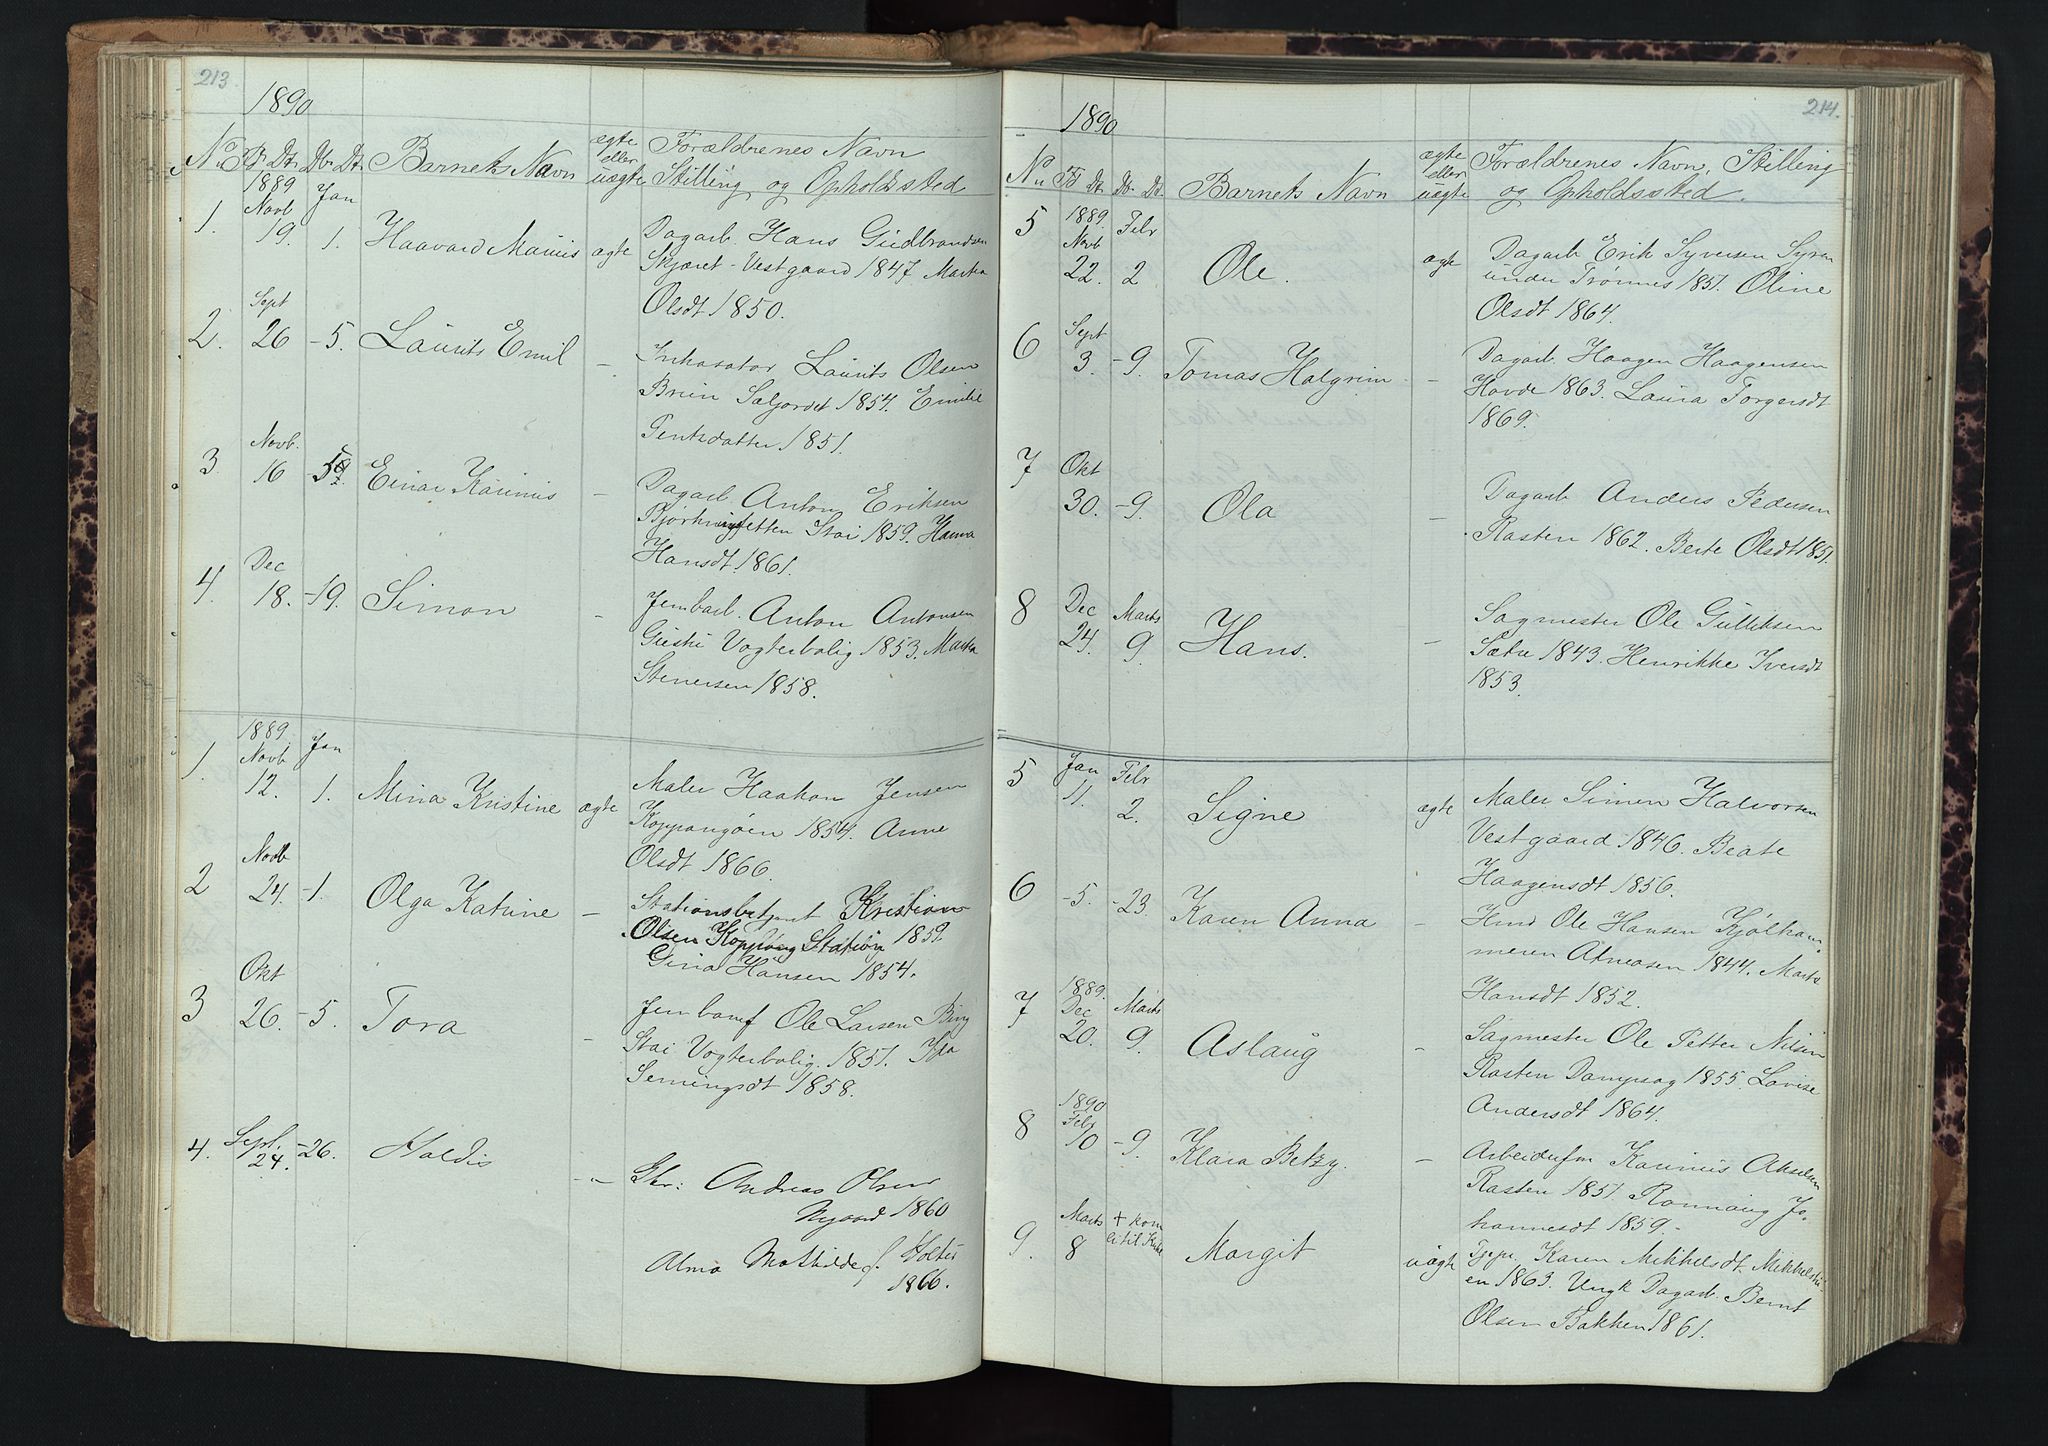 213.
1890
No Fd Dt. Db. Dt. Barnets Navn ægte eller uægte Forældrenes Navn
Skilling og Opholdssted
1. 1889 Novb 19. Jan 1. Haavard Marius ægte Dagarb. Hans Gudbrandsen
Skjæret - Vestgaard 1847 Marta
Olsdt 1850.
2. Sept 26 - 5. Laurits Emil - Inkasator Laurits Olsen
Brun Saljordet 1854. Emilie
Gentsdatter 1851.
3 Novb. 16 Einar Karinius - Dagarb. Anton Eriksen
Stai 1859. Hanna
Hansdt. 1861.
4. Dec 18. - 19. Simon - Jernbarb. Anton Antonsen
Vogterbolig 1853. Marta
Stenersen 1858.
1. 1889. Novb 12. Jan 1. Mina Kristine ægte Maler Haakon Jensen
Koppangøen 1854. Anne
Olsdt 1866.
2 Novb 24. - 1. Olga Katrine - Stationsbetjent Kristian
Olsen Koppang Station 1859.
Gina Hansen 1854.
3 Okt 26. - 5. Tora - Jernbanef Ole Larsen Bing
Stai Vogterbolig. 1851. Ida
Semingsdt 1858.
4. Sept. 24. - 26. Haldis - Gbr: Andreas Olsen
Nygard 1860
Alma Mathilde f. Holter
1866.
214.
1890
No Fd Dt. Db. Dt. Barnets Navn ægte eller uægte Forældrenes Navn, Skilling
og Opholdssted.
5 1889. Novb 22. Febr 2 Ole. ægte Dagarb Erik Syversen Syren
under Trønnes 1851. Oline
Olsdt 1864.
6 Sept 3. - 9. Tomas Halgrim - Dagarb. Haagen Haagensen
Hovde 1863. Laura Torgersdt
1869.
7 Okt 30. - 9. Ola - Dagarb Anders Pedersen
Rasten 1862. Berte Olsdt 1851.
8 Dec 24. Marts 9. Hans. - Sagmester Ole Gulliksen
Sætre 1843. Henrikke Iversdt
1853.
5 Jan 11. Febr 2. Signe ægte Maler Simen Halvorsen
Vestgaard 1846. Beate
Haagensdt 1856.
6 - 5. - 23. Karen Anna - Hmd Ole Hansen Kjølham-
meren Atneosen 1844. Marte
Hansdt 1852.
7 1889. Dec 20. Marts 9. Aslaug - Sagmester Ole Petter Nilsen
Rasten Dampsag 1855. Lovise
Andersdt 1864.
8 1890 Febr 10 - 9. Klara Betzy. - Arbeidsfm Karinius Akselsen
Rasten 1851. Rønnaug Jo-
hannesdt 1859.
9. Marts 8 + kom ei til Kirke Margit uægte Tjpe. Karen Mikkelsdt. Mikkelsti-
en 1863. Ungk Dagarb. Bernt
Olsen Bakken 1861.